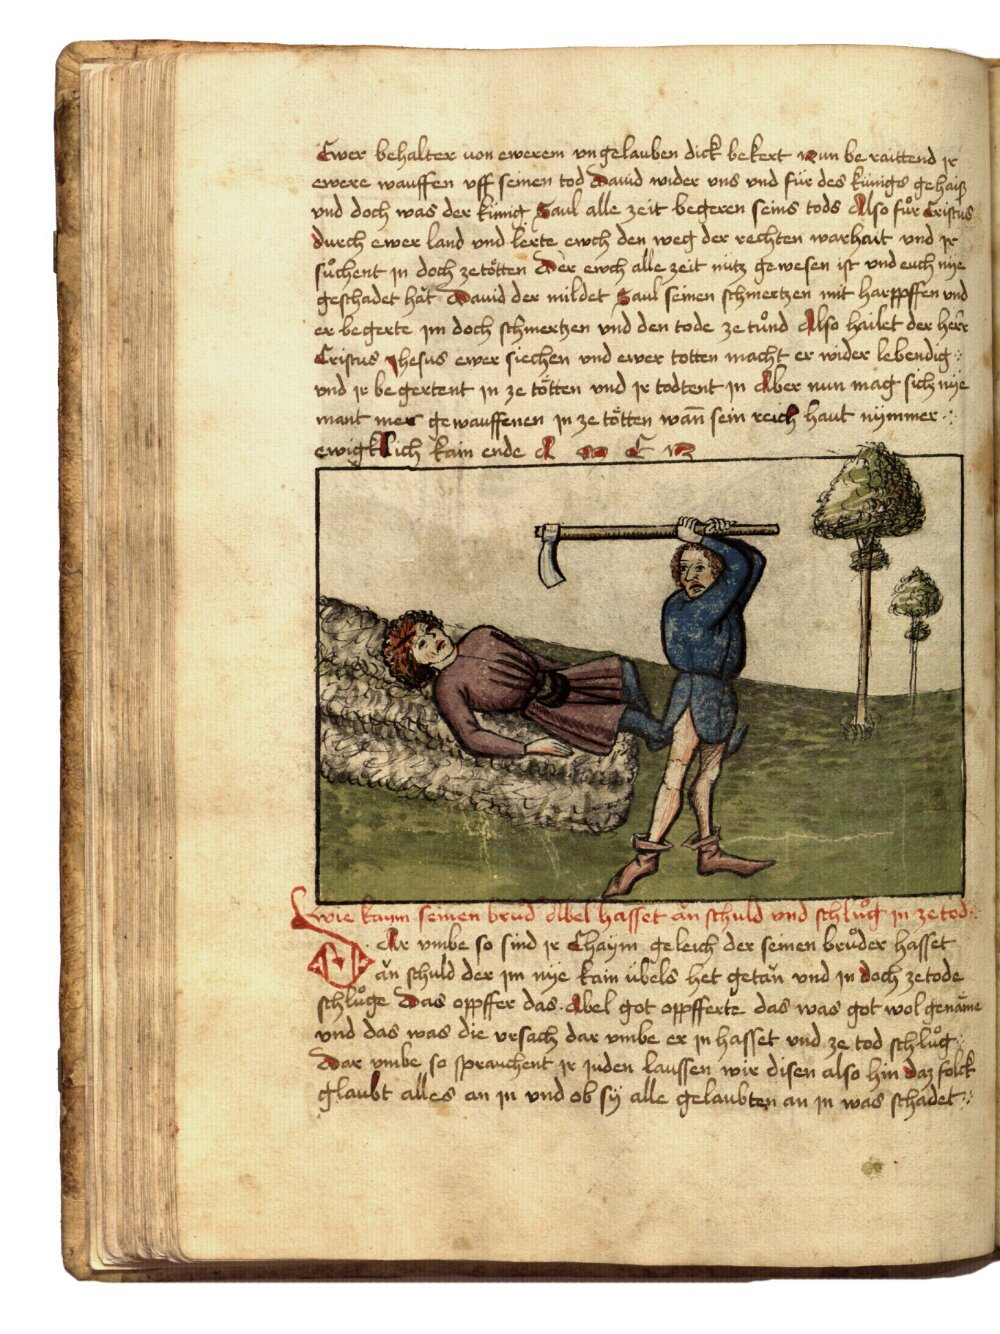 Ewer behalter von ewerem vngelauben dick bekert Nun beraittend jr
ewere wauffen vff seinen tod Dauid wider vns vnd für des künigs gehaiß
vnd doch was der künig Saul alle zeit begeren seins tods Also fuͦr Cristus
durch ewer land vnd lerte ewch den weg der rechten warhait vnd jr
suͦchent jn doch ze tötten Der ewch alle zeit nütz gewesen ist vnd euch nye
geschadet hät Dauid der mildet Saul seinen schmertzen mit harppffen vnd
er begerte jm doch schmertzen vnd den tode ze tuͦnd Also hailet der herr
Cristus Jhesus ewer siechen vnd ewer totten macht er wider lebendig
vnd jr begertent jn ze tötten vnd jr todtent jn Aber nun mag sich nye
mant mer gewauffenen jn ze tötten wan̄ sein reich haut nymmer
ewigklich kain ende A M E N
wie kaym seinen bruͦd Abel hasset än schuld vnd schluͦg jn ze tod
Dar vmbe so sind jr Chaym geleich der seinen bruͦder hasset
än schuld der jm nye kain übels het getän vnd jn doch ze tode
schluͦge Das oppffer das Abel got oppfferte das was got wol genäme
vnd das was die vrsach dar vmbe er jn hasset vnd ze tod schluͦg
Dar vmbe so sprauchent jr juden laussen wir disen also hin daz folck
glaubt alles an jn vnd ob sy alle gelaubten an jn was schadet